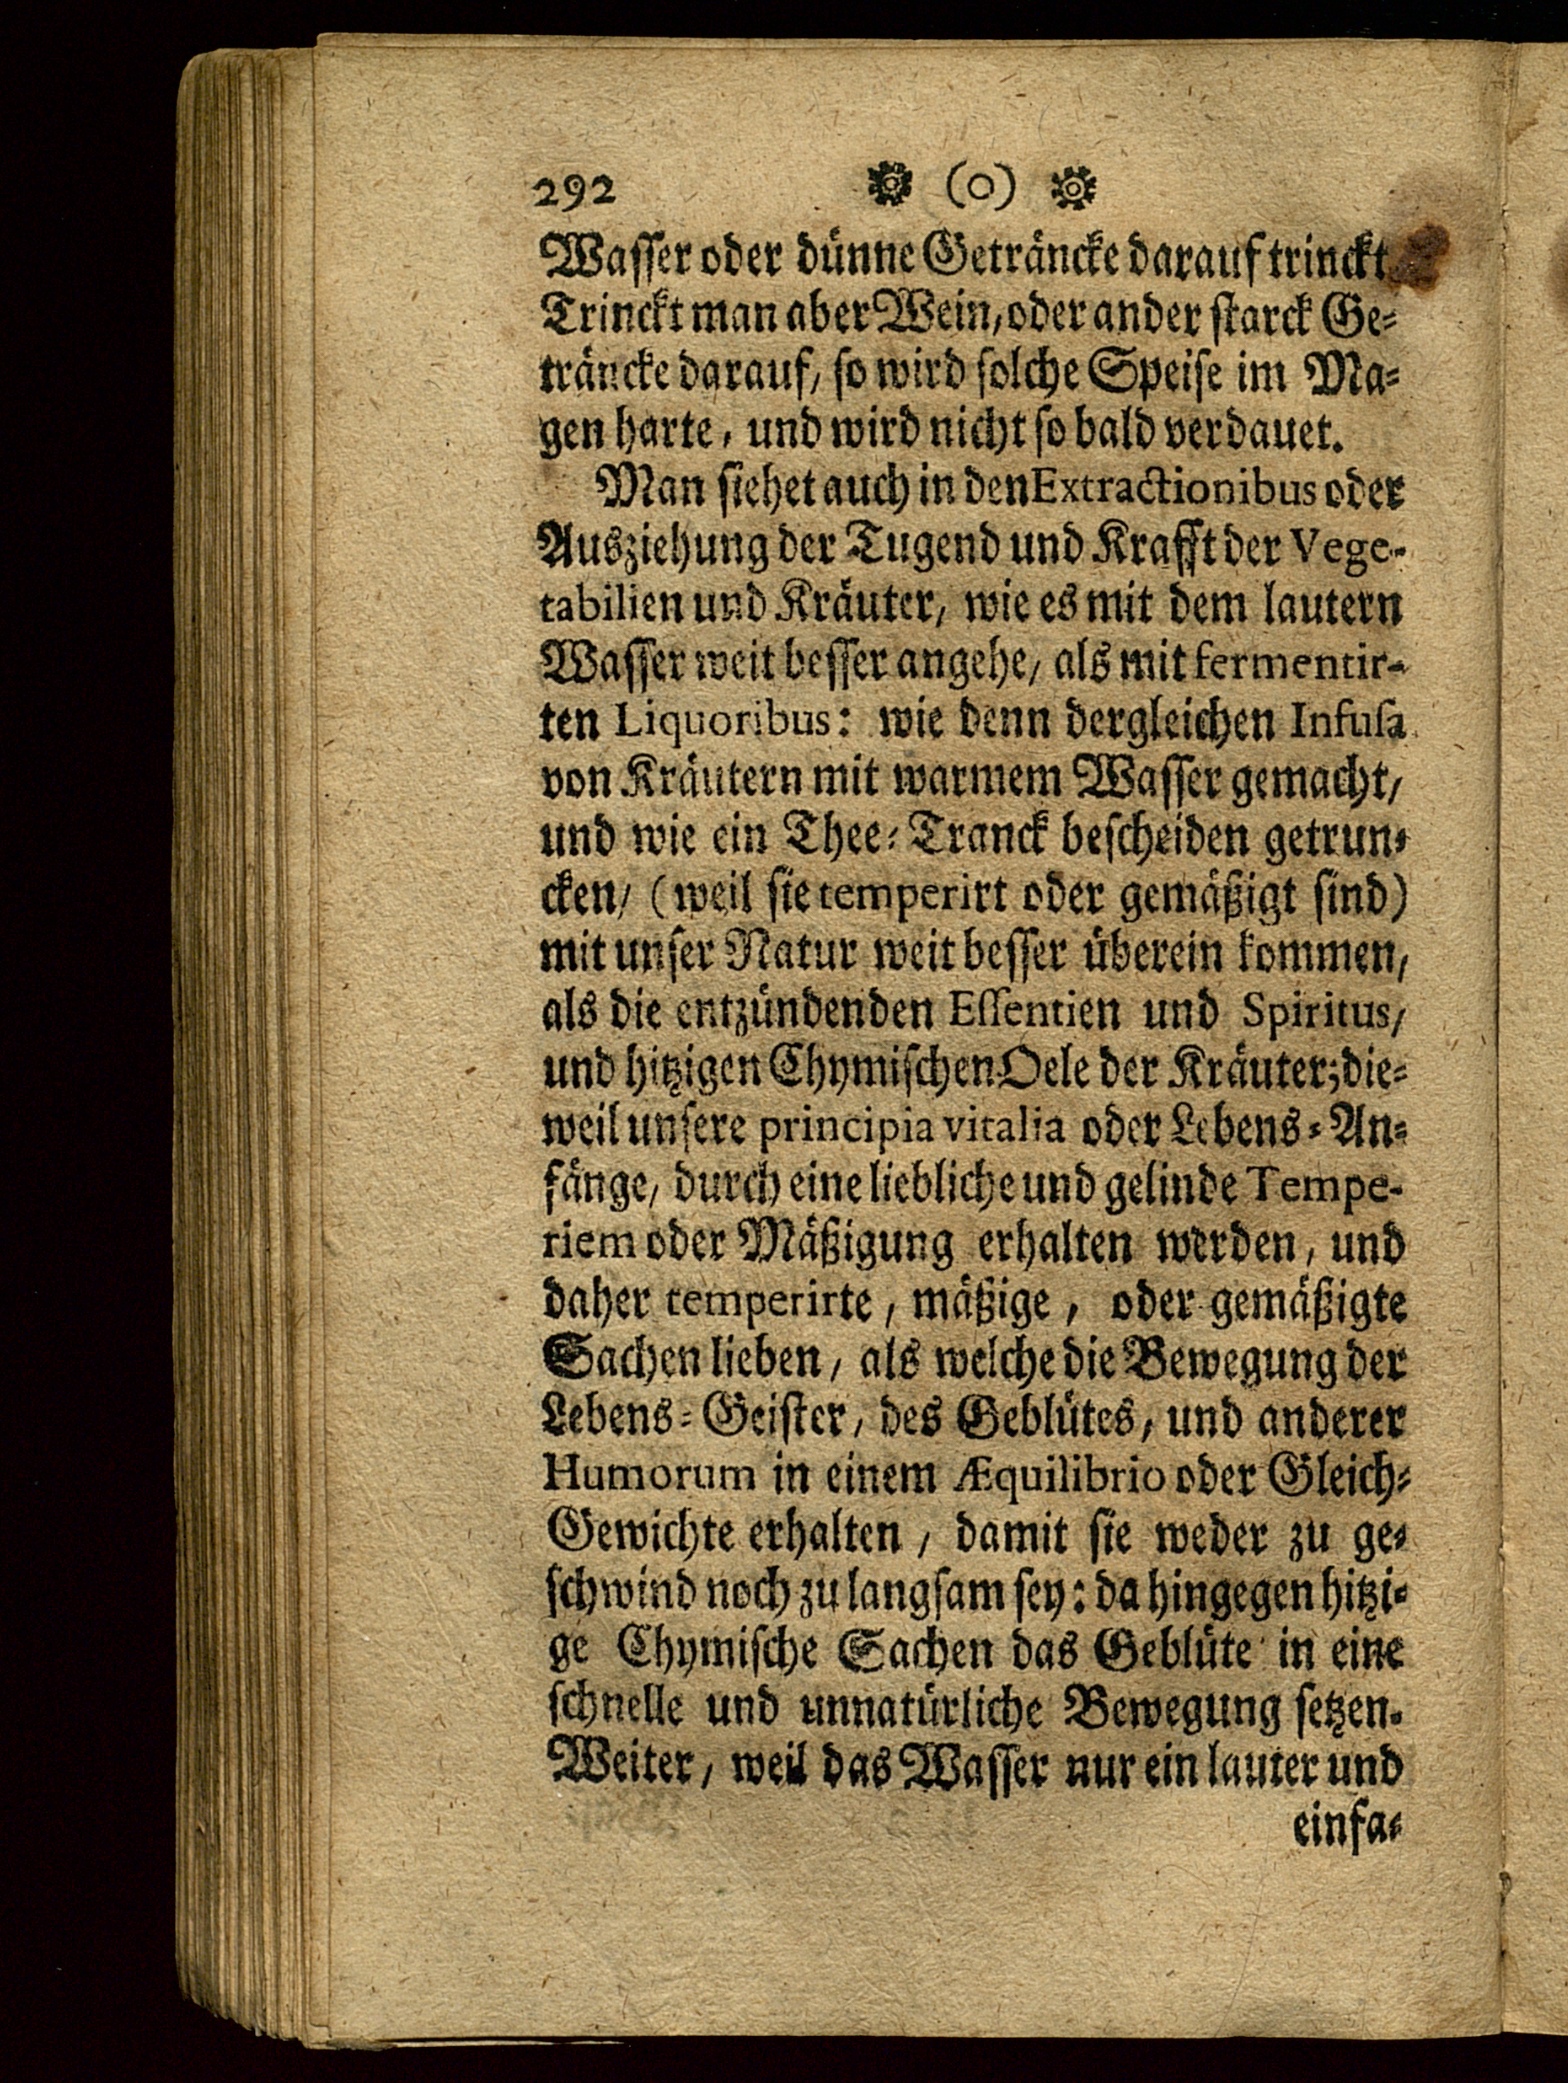 292 (o)
Wasser oder dünne Geträncke darauf trinckt
Trinckt man aber Wein, oder ander starck Ge-
träncke darauf, so wird solche Speise im Ma-
gen harte, und wird nicht so bald verdauet.
Man siehet auch in den Extractionibus oder
Ausziehung der Tugend und Krafft der Vege-
tabilien und Kräuter, wie es mit dem lautern
Wasser weit besser angehe, als mit fermentir-
ten Liquoribus: wie denn dergleichen Infusa
von Kräutern mit warmem Wasser gemacht,
und wie ein Thee-Tranck bescheiden getrun-
cken, (weil sie temperirt oder gemäßigt sind)
mit unser Natur weit besser überein kommen,
als die entzündenden Essentien und Spiritus,
und hitzigen Chymischen Oele der Kräuter; die-
weil unsere principia vitalia oder Lebens-An-
fänge, durch eine liebliche und gelinde Tempe-
riem oder Mäßigung erhalten werden, und
daher temperirte, mäßige, oder gemäßigte
Sachen lieben, als welche die Bewegung der
Lebens-Geister, des Geblütes, und anderer
Humorum in einem Æquilibrio oder Gleich-
Gewichte erhalten, damit sie weder zu ge-
schwind noch zu langsam sey: da hingegen hitzi-
ge Chymische Sachen das Geblüte in eine
schnelle und unnatürliche Bewegung setzen.
Weiter, weil das Wasser nur ein lauter und
einfa-